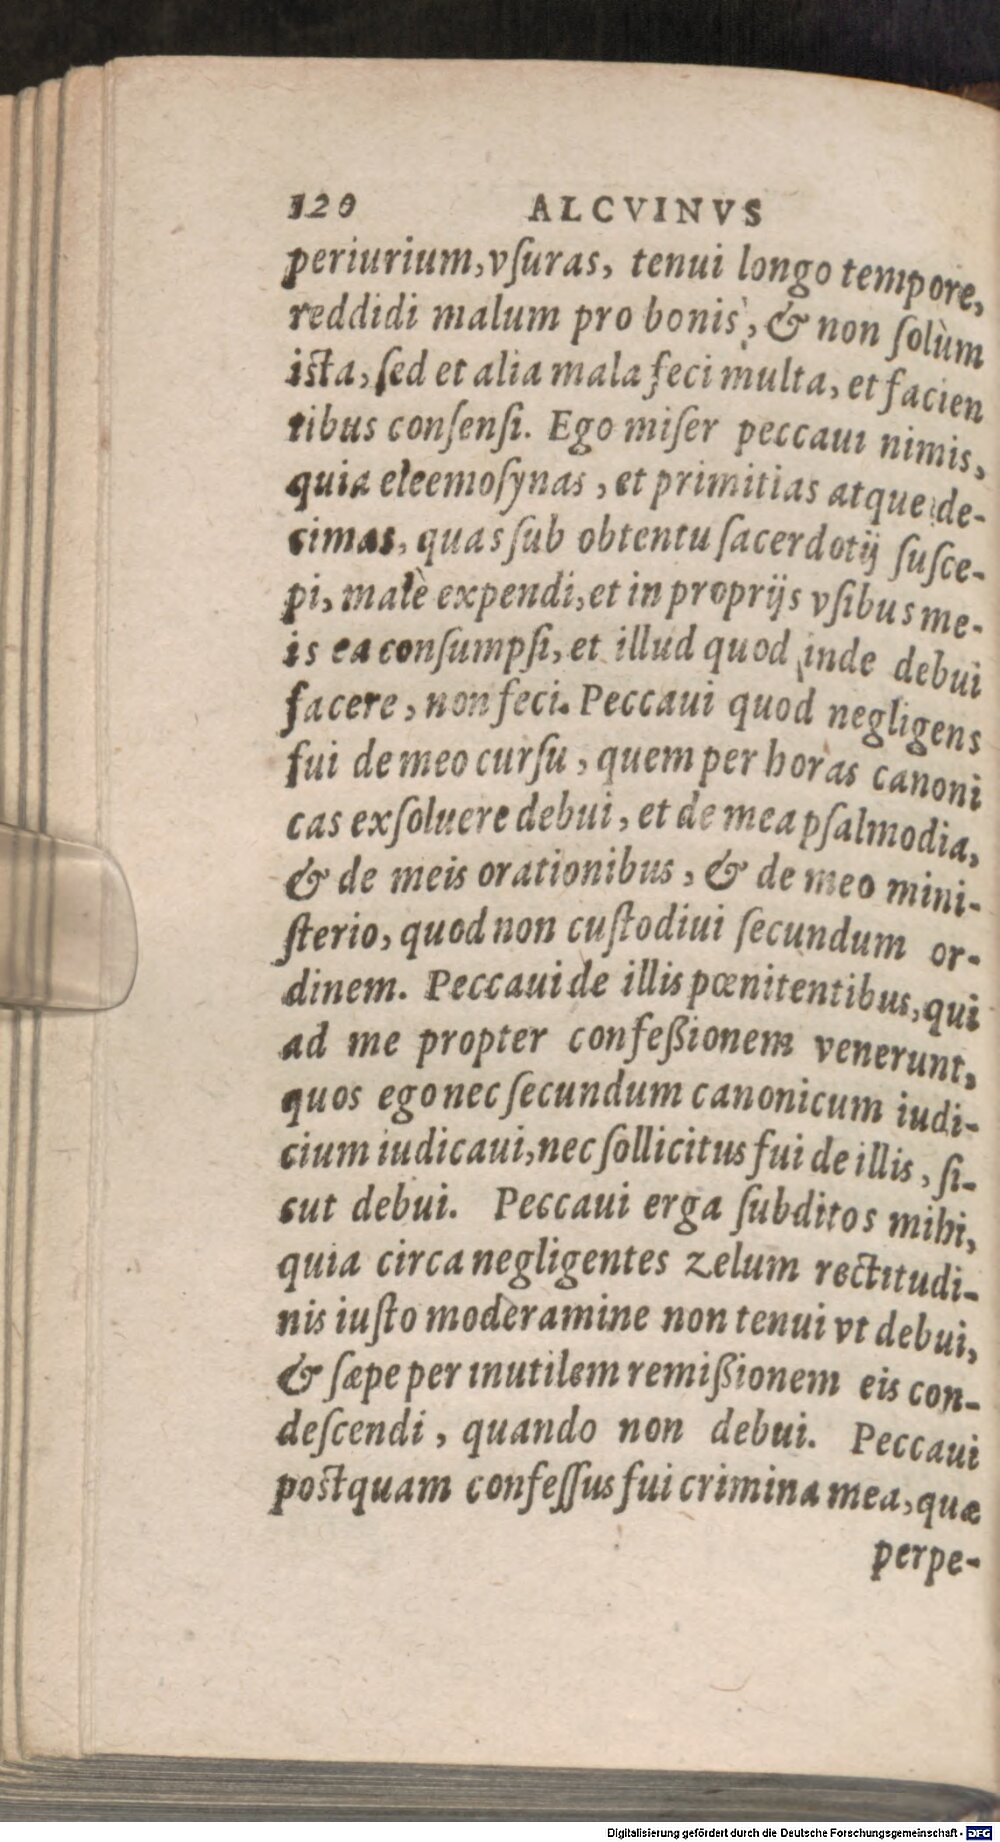 120 ALCVINVS
periurium, vſuras, tenui longo tempore,
reddidi malum pro bonis, & non ſolùm
iſta, ſed et alia mala feci multa, et facien
tibus conſenſi. Ego miſer peccaui nimis,
quia eleemoſynas, et primitias atque de-
cimas, quas ſub obtentu ſacerdotij ſuſce-
pi, malè expendi, et in proprijs vſibus me-
is ea conſumpſi, et illud quod inde debui
facere, non feci. Peccaui quod negligens
fui de meo curſu, quem per horas canoni
cas exſoluere debui, et de mea pſalmodia,
& de meis orationibus, & de meo mini-
ſterio, quod non cuſtodiui ſecundum or-
dinem. Peccaui de illis pœnitentibus, qui
ad me propter confeßionem venerunt,
quos ego nec ſecundum canonicum iudi-
cium iudicaui, nec ſollicitus fui de illis, ſi-
cut debui. Peccaui erga ſubditos mihi,
quia circa negligentes zelum rectitudi-
nis iuſto moderamine non tenui vt debui,
& ſæpe per inutilem remißionem eis con-
deſcendi, quando non debui. Peccaui
poſtquam confeſſus fui crimina mea, quæ
perpe-
Digitalisierung gefördert durch die Deutsche Forschungsgemeinschaft - DFG